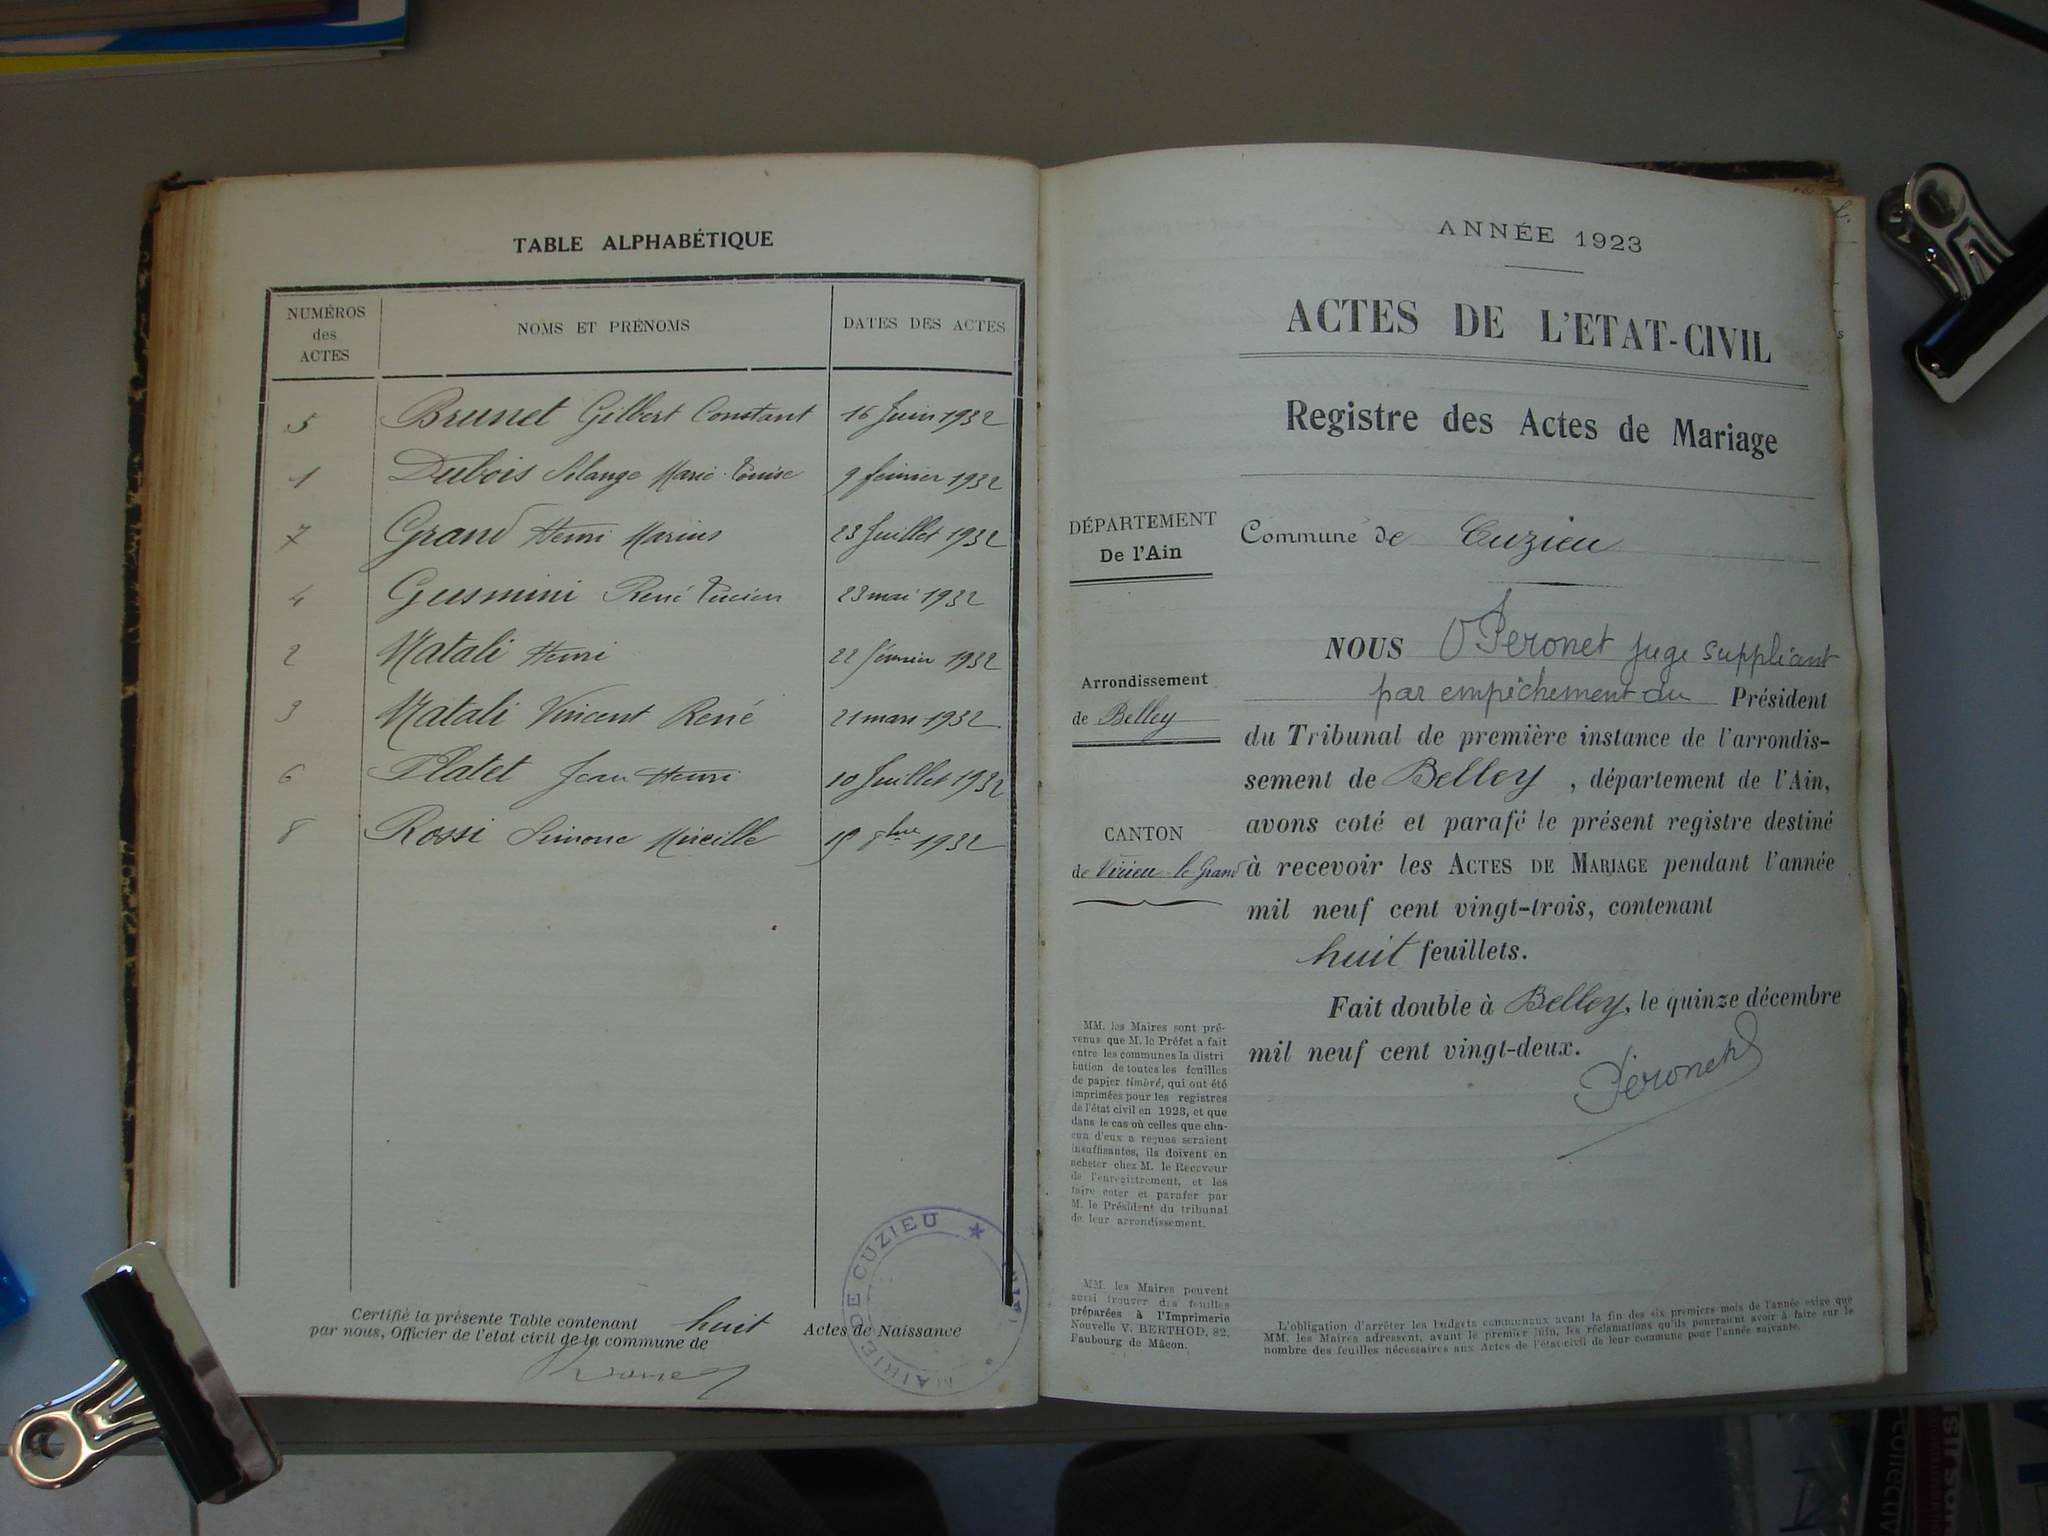 TABLE ALPHABÉTIQUE
NUMÉROS des ACTES NOMS ET PRÉNOMS DATES DES ACTES
5 Brunet Gilbert Constant 16 Juin 1932
1 Dubois Solange Marie-Louise 9 février 1932
7 Grand Henri Marius 23 Juillet 1932
4 Gusmini René Lucien 23 mai 1932
2 Natali Henri 22 février 1932
3 Natali Vincent René 21 mars 1932
6 Platet Jean Henri 10 Juillet 1932
8 Rossi Simone Mireille 19 8bre 1932
Certifié la présente Table contenant huit Actes de Naissance
par nous, Officier de l'etat civil de la commune de
MAIRIE DE CUZIEU
ANNÉE 1923
ACTES DE L'ETAT-CIVIL
Registre des Actes de Mariage
DÉPARTEMENT
De l'Ain
Commune de Cuzieu
Arrondissement
de Belley
CANTON
de Virieu-le-Grand
NOUS Péronet juge suppliant
par empêchement du Président
du Tribunal de première instance de l'arrondis-
sement de Belley, département de l'Ain,
avons coté et parafé le présent registre destiné
à recevoir les ACTES DE MARIAGE pendant l'année
mil neuf cent vingt-trois, contenant
huit feuillets.
Fait double à Belley, le quinze décembre
mil neuf cent vingt-deux.
Péronet
MM. les Maires sont pré-
venus que M. le Préfet a fait
entre les communes la distri
bution de toutes les feuilles
de papier timbré, qui ont été
imprimées pour les registres
de l'état civil en 1923, et que
dans le cas où celles que cha-
cun d'eux a reçues seraient
insuffisantes, ils doivent en
acheter chez M. le Receveur
de l'enregistrement, et les
faire coter et parafer par
M. le Président du tribunal
de leur arrondissement.
MM. les Maires peuvent
aussi trouver des feuilles
préparées à l'Imprimerie
Nouvelle V. BERTHOD, 82,
Faubourg de Mâcon.
L'obligation d'arrêter les budgets communaux avant la fin des six premiers mois de l'année exige que
MM. les Maires adressent, avant le premier juin, les réclamations qu'ils pourraient avoir à faire sur le
nombre des feuilles nécessaires aux Actes de l'état-civil de leur commune pour l'année suivante.